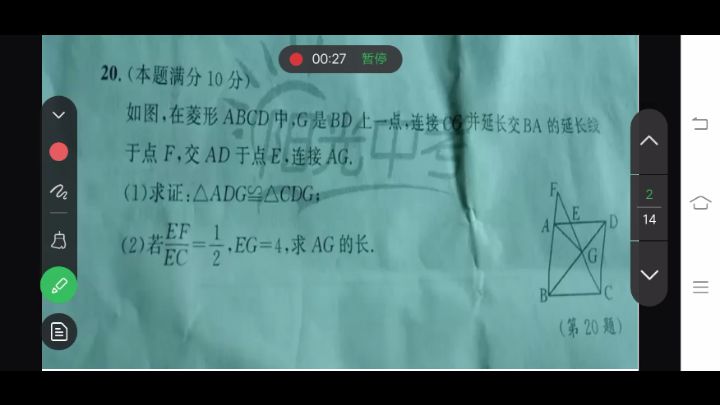 00:27 暂停
20.(本题满分10分)
如图,在菱形ABCD中,G是BD上一点,连接CG并延长交BA的延长线
于点F,交AD于点E,连接AG.
(1)求证:△ADG≌△CDG;
(2)若EF/EC=1/2,EG=4,求AG的长.
F
A E D
G
B C
(第20题)
2
14
阳光中考